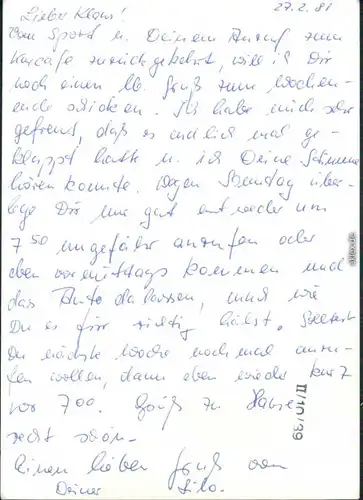 27.2.81
Lieber Klaus!
Vom Sport u. Deinem Anruf zum
zurückgekehrt, will ich Dir
noch einen lb. Gruß zum Wochen-
ende schicken. Ich habe mich sehr
gefreut, daß es endlich mal ge-
klappt hatte u. ich Deine Stimme
hören konnte. Wegen Sonntag über-
lege Dir nur gut entweder um
7 50 ungefähr anrufen oder
eben vormittags kommen und
das Auto da lassen, und wie
Du es für richtig hälst. Solltest
Du nächste Woche noch mal anru-
fen wollen, dann eben wieder kurz
vor 7 00. Grüß zu Hause
recht schön.
Einen lieben Gruß von
Deiner Lilo.
II/10/39